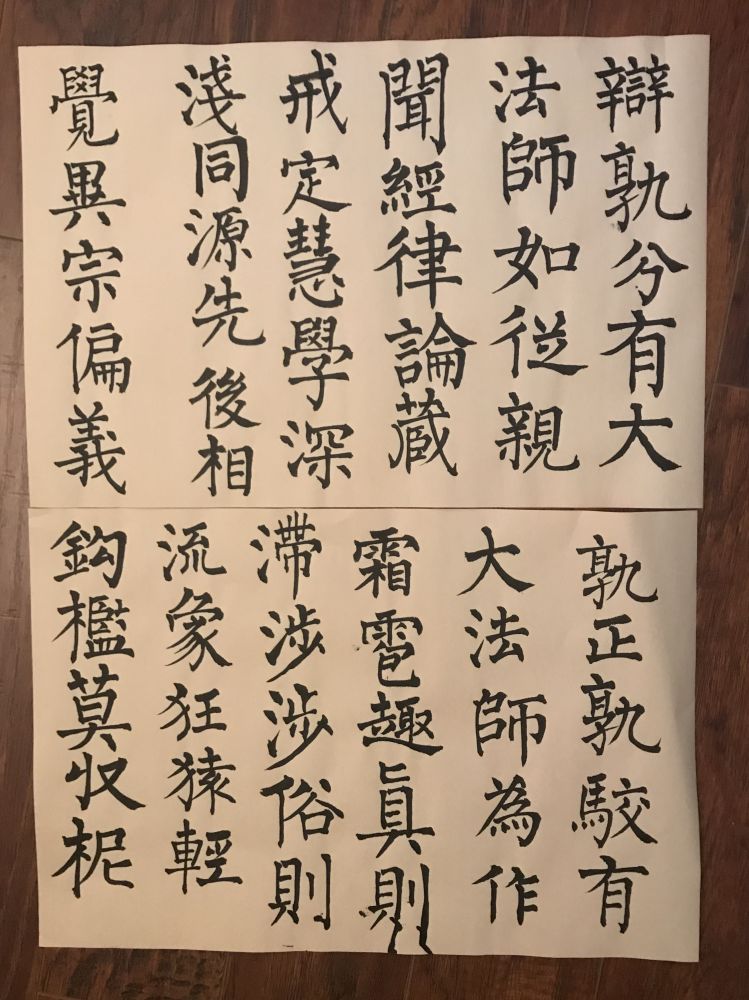 辯孰分有大
法師如從親
聞經律論藏
戒定慧學深
淺同源先後相
覺異宗偏義
孰正孰駮有
大法師為作
霜雹趣眞則
滯涉涉俗則
流象狂猿輕
鈎檻莫收柅